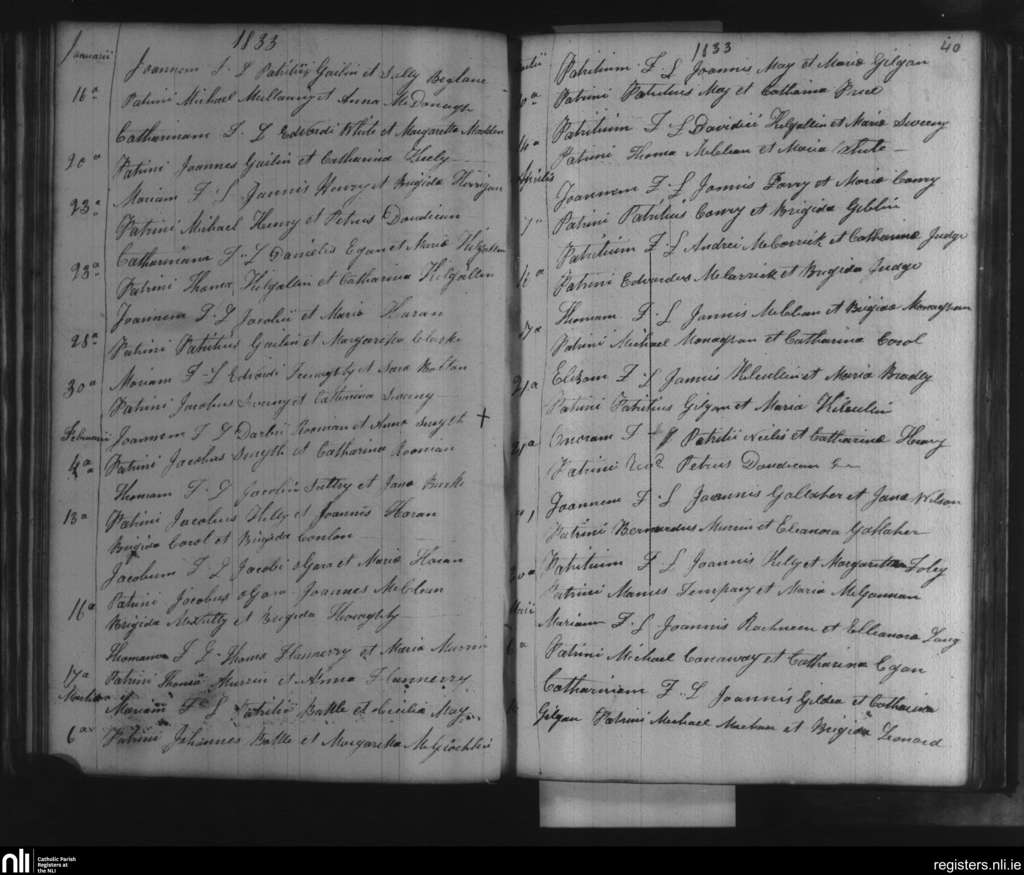 Januarii 1833
Joannem F L Patritii Gaitin et Sally Beglane
16a Patrini Michael Mullanny et Anna McDonagh
Catharinam F. L Edvardi White et Margaretta Madden
20a Patrini Joannes Gaitin et Catharina Healy
Mariam F. L. Jannis Henry et Brigida Kerrigan
23a Patrini Michael Henry et Petrus Doudican
Catharinam F. L Danielis Egan et Maria Kilgallen
23a Patrini Thomas Kilgallen et Catharina Kilgallen
Joannem F. L Jacobii et Maria Haran
28a Patrini Patritius Gaitin et Margaretta Clarke
Mariam F. L Edvardi et Sara Battan
30a Patrini Jacobus Sweeny et Catherina Sweeny
Februarii Joannem F L Darbii Roonian et Anna Smyth +
4a Patrini Jacobus Smyth et Catharina Roonian
Thomam F. L Jacobii et Jana Burke
13a Patrini Jacobus Kelly et Joannis Horan
Brigida Carol et Brigida Conlon
Jacobum F L Jacobi oGara et Maria Horan
16a Patrini Jacobus oGara Joannes McClean
Brigida McNulty et Brigida
Thomam F L Thoma Flannerry et Maria Murrin
17a Patrini Thomas Murren et Anna Flannerry
Martii Mariam F L Patritii Battle et Cecilia May
6a Patrini Johannes Battle et Margaretta
1833 40
Patritium F L Joannis May et Maria Gilgan
Patrini Patritius May et Catharina
Patritium F. L Davidii Kilgallin et Maria Sweeny
4a Patrini Thoma McClean et Maria White
Aprilis
Joannem F. L Jannis Farry et Maria Conry
7a Patrini Patritius Conry et Brigida Giblin
Patritium F. L Andrei McCarrick et Catharina Judge
Patrini Edvardus McCarrick et Brigida Judge
Thomam F. L Jannis McClean et Brigida Monaghan
17a Patrini Michael Monaghan et Catharina Carol
Elizam F. L Jannis Kilcullin et Maria Bradly
21a Patrini Patritius Gilgan et Maria Kilcullin
Onoram F Patritii Neilis et Catharina Henry
21a Patrini Revd Petrus Doudican
Joannem F. L Joannis Gallaher et Jana Wilson
Patrini Bernardus Murrin et Eleanora Gallaher
Patritium F L Joannis Kelly et Margaretta Foley
Patrini Manus Tempany et Maria McGannan
Mariam F. L Joannis et Elleanora Lang
Patrini Michael Canaway et Catharina Egan
Catharinam F. L Joannis Gildea et Catharina
Gilgan Patrini Michael Meehan et Brigida Leonard
nli Catholic Parish
Registers at
the NLI
registers.nli.ie